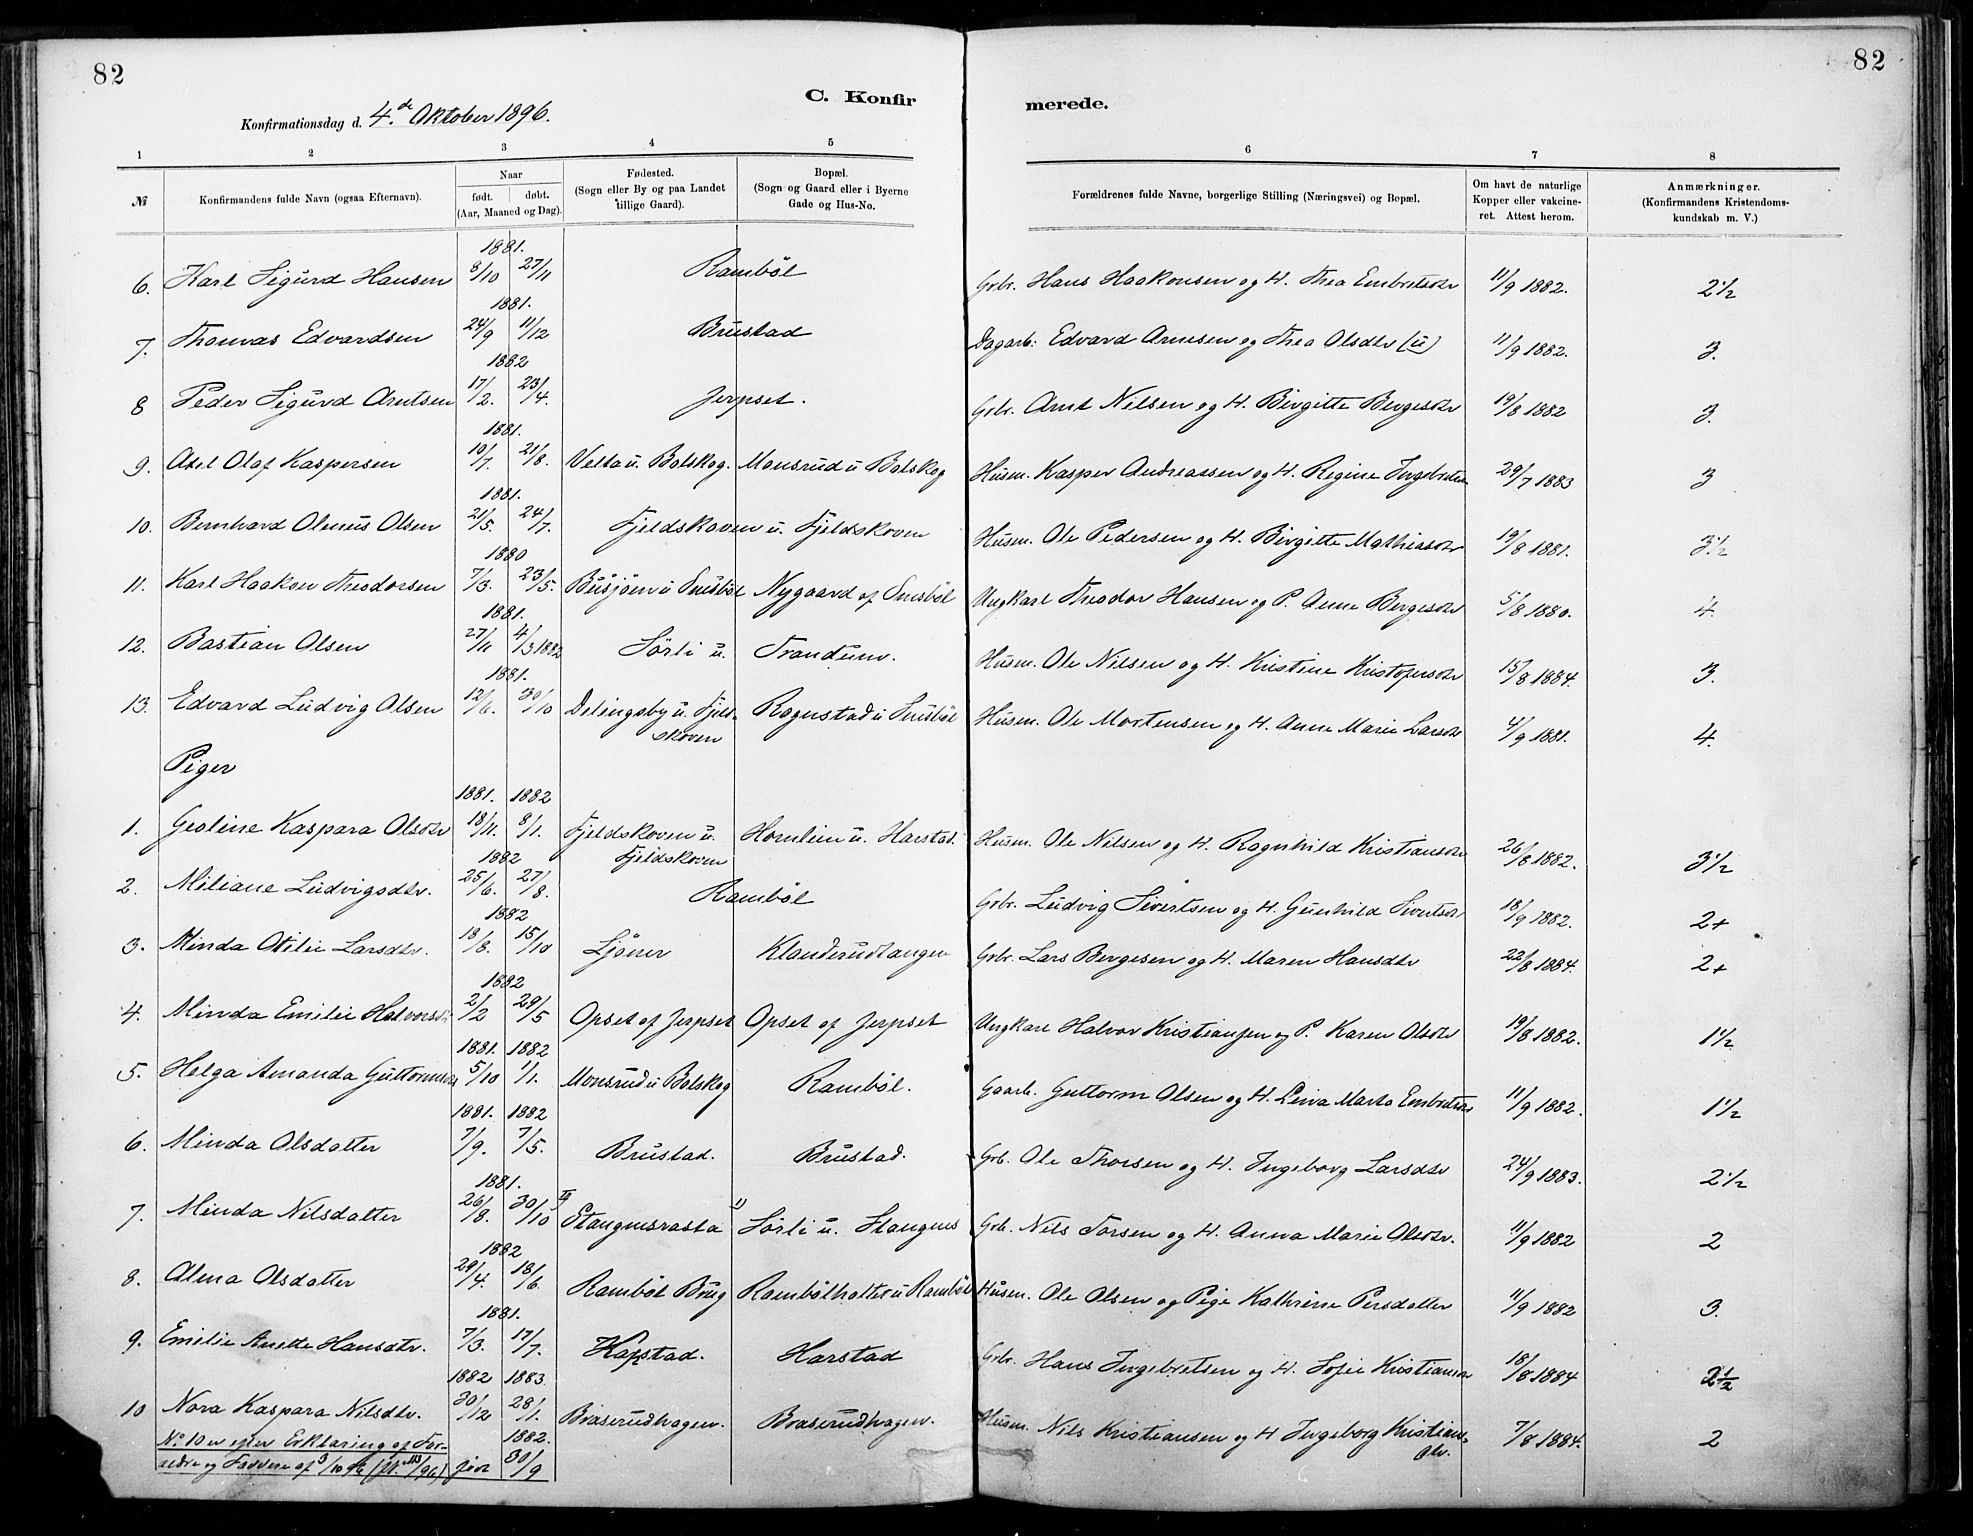 82
82
C. Konfirmerede.
Konfirmationsdag d. 4de Oktober 1896.
1 2 3 4 5 6 7 8
№ Konfirmandens fulde Navn (ogsaa Efternavn). Naar født. døbt. (Aar, Maaned og Dag). Fødested. (Sogn eller By og paa Landet tillige Gaard). Bopæl. (Sogn og Gaard eller i Byerne Gade og Hus-No. Forældrenes fulde Navne, borgerlige Stilling (Næringsvei) og Bopæl. Om havt de naturlige Kopper eller vakcineret. Attest herom. Anmærkninger. (Konfirmandens Kristendomskundskab m. V.)
1881.
6. Karl Sigurd Hansen 8/10 27/11 Rambøl Grbr. Hans Haakonsen og H. Thea Embretsdtr 11/9 1882. 2 1/2
1881.
7. Thomas Edvardsen 24/9 11/12 Brustad Dagarb: Edvard Arnesen og Thea Olsdtr (u) 11/9 1882. 3.
1882
8 Peder Sigurd Arntsen 17/2. 23/4. Jerpset. Grbr. Arnt Nilsen og H. Birgitte Bergesdtr 19/8 1882 3.
1881.
9. Axel Olaf Kaspersen 10/7. 21/8. Velta u. Bolskog. Monsrud u Bolskog Husm. Kasper Andreassen og H. Regine Ingebretsdtr 29/7 1883 3
1881.
10. Bernhard Olenus Olsen 21/5. 24/7. Fjeldskoven u. Fjeldskoven Husm. Ole Pedersen og H. Birgitte Mathiasdtr 19/8 1881. 3 1/2
1880
11. Karl Haakon Theodorsen 7/3. 23/5. Busjøen u Snesbøl Nygaard af Snesbøl Ungkarl Theodor Hansen og P. Anne Bergesdtr 5/8 1880. 4.
1881.
12. Bastian Olsen 27/11 4/3 1882 Sørli u. Trandum. Husm. Ole Nilsen og H. Kristine Kristofersdtr 15/8 1884. 3.
1881.
13. Edvard Ludvig Olsen 12/6. 30/10 Delingsby u. Fjeldskoven Rognstad u Snesbøl Husm. Ole Mortensen og H. Anne Marie Larsdtr 4/9 1881. 4.
Piger
1881. 1882
1. Geoline Kaspara Olsdtr 18/11. 8/1. Fjeldskoven u. Fjeldskoven Hornlein u. Harstad. Husm. Ole Nilsen og H. Ragnhild Kristiansdtr 26/8 1882. 3 1/2
1882
2. Miliane Ludvigsdtr. 25/6. 27/8. Rambøl Grbr. Ludvig Sivertsen og H. Gunhild Sivertsdtr 18/9 1882. 2+
1882
3. Minda Otilie Larsdtr. 18/8. 15/10 Ljøner Klanderudtangen Grbr. Lars Bergesen og H. Maren Hansdtr 22/8 1884. 2+
1882
4. Minda Emilie Halvorsdtr 2/2 29/5 Opset af Jerpset Opset af Jerpset Ungkarl Halvor Kristiansen og P. Karen Olsdtr 19/8 1882. 1 1/2
1881. 1882
5. Helga Amanda Guttormsdtr 5/10 1/1. Monsrud u Bolskog Rambøl. Gaarb. Guttorm Olsen og H. Lina Marta Embretsdtr 11/9 1882. 1 1/2
1881. 1882
6. Minda Olsdatter 7/9. 7/5. Brustad. Brustad. Grb. Ole Thorsen og H. Ingeborg Larsdtr 24/9 1883. 2 1/2
1881.
7. Minda Nilsdatter 26/8. 30/10 Stangnesrasta Sørli u. Stangnes Grb. Nils Torsen og H. Anna Marie Olsdtr. 11/9 1882 2
1882
8. Alma Olsdatter 29/4. 18/6. Rambøl Brug Rambølholter u Rambøl Husm. Ole Olsen og Pige Kathrine Persdatter 11/9 1882 3.
1881.
9. Emilie Anette Hansdtr. 7/3. 17/7. Harstad. Harstad Grbr. Hans Ingebretsen og H. Sofie Kristiansdtr 18/8 1884 2 1/2
1882 1883.
10 Nora Kaspara Nilsdtr. 30/12 28/1. Braserudhagen. Braserudhagen. Husm. Nils Kristiansen og H Ingeborg Kristiansdtr. 7/8 1884. 2
No 10 er efter Erklæring af For- 1882.
ældre og Faddere af 9/10 96 født 30/9